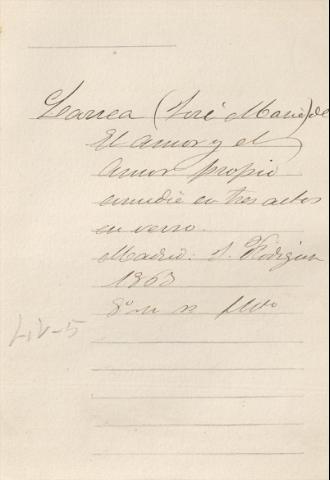 Larrea (José Maria) de
El amor y el
amor propio
comedia en tres actos
en verso.
Madrid. J. Rodriguez
1863
8º
L, V-5